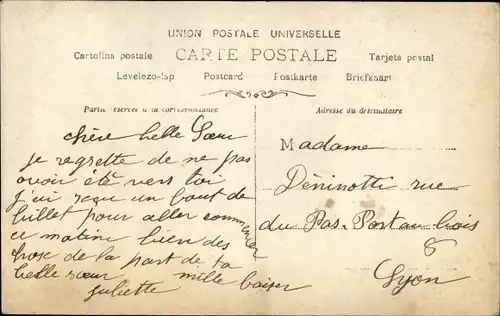 UNION POSTALE UNIVERSELLE
CARTE POSTALE
Cartolina postale
Tarjeta postal
Levelezo-lap Postcard Postkarte Briefkaart
Partie réservée à la correspondance
Adresse du destinataire
chère belle Sœur
je regrette de ne pas
avoir été vers toi
j'ai reçu un bout de
billet pour aller commencer
ce matin bien des
chose de la part de ta
belle sœur mille baiser
Juliette
Madame
Déninotti rue
du Pas. Port au bois
8
Lyon